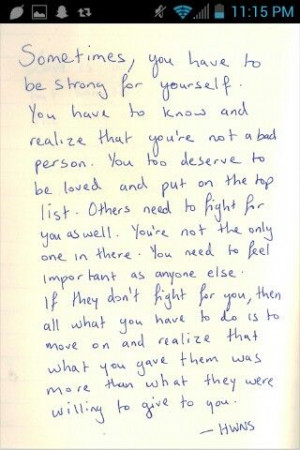 11:15 PM
Sometimes, you have to
be strong for yourself.
You have to know and
realize that you're not a bad
person. You too deserve to
be loved and put on the top
list. Others need to fight for
you as well. You're not the only
one in there. You need to feel
important as anyone else.
If they don't fight for you, then
all what you have to do is to
move on and realize that
what you gave them was
more than what they were
willing to give to you.
— HWNS